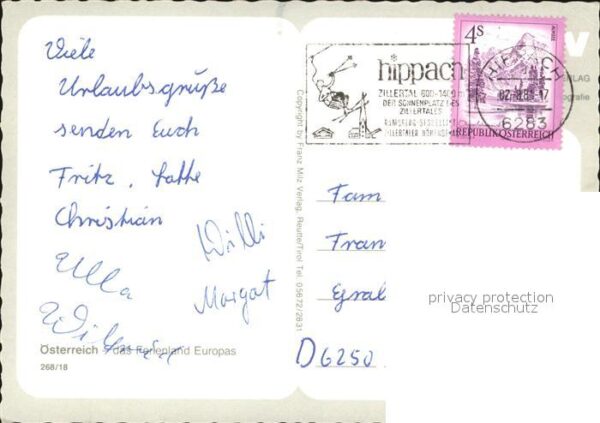 Viele
Urlaubsgrüße
senden Euch
Fritz, Lotte
Christian
Ulla
Willi
Margot
Österreich - das Ferienland Europas
268/18
Copyright by Franz Milz Verlag, Reutte/Tirol Tel. 05672/2831
hippach
ZILLERTAL 600-1400 m
DER SONNENPLATZ DES
ZILLERTALES
ZILLERTALER
4S
REPUBLIK ÖSTERREICH
6283
VERLAG
Fam
Fran
Gral
D 6250
privacy protection
Datenschutz